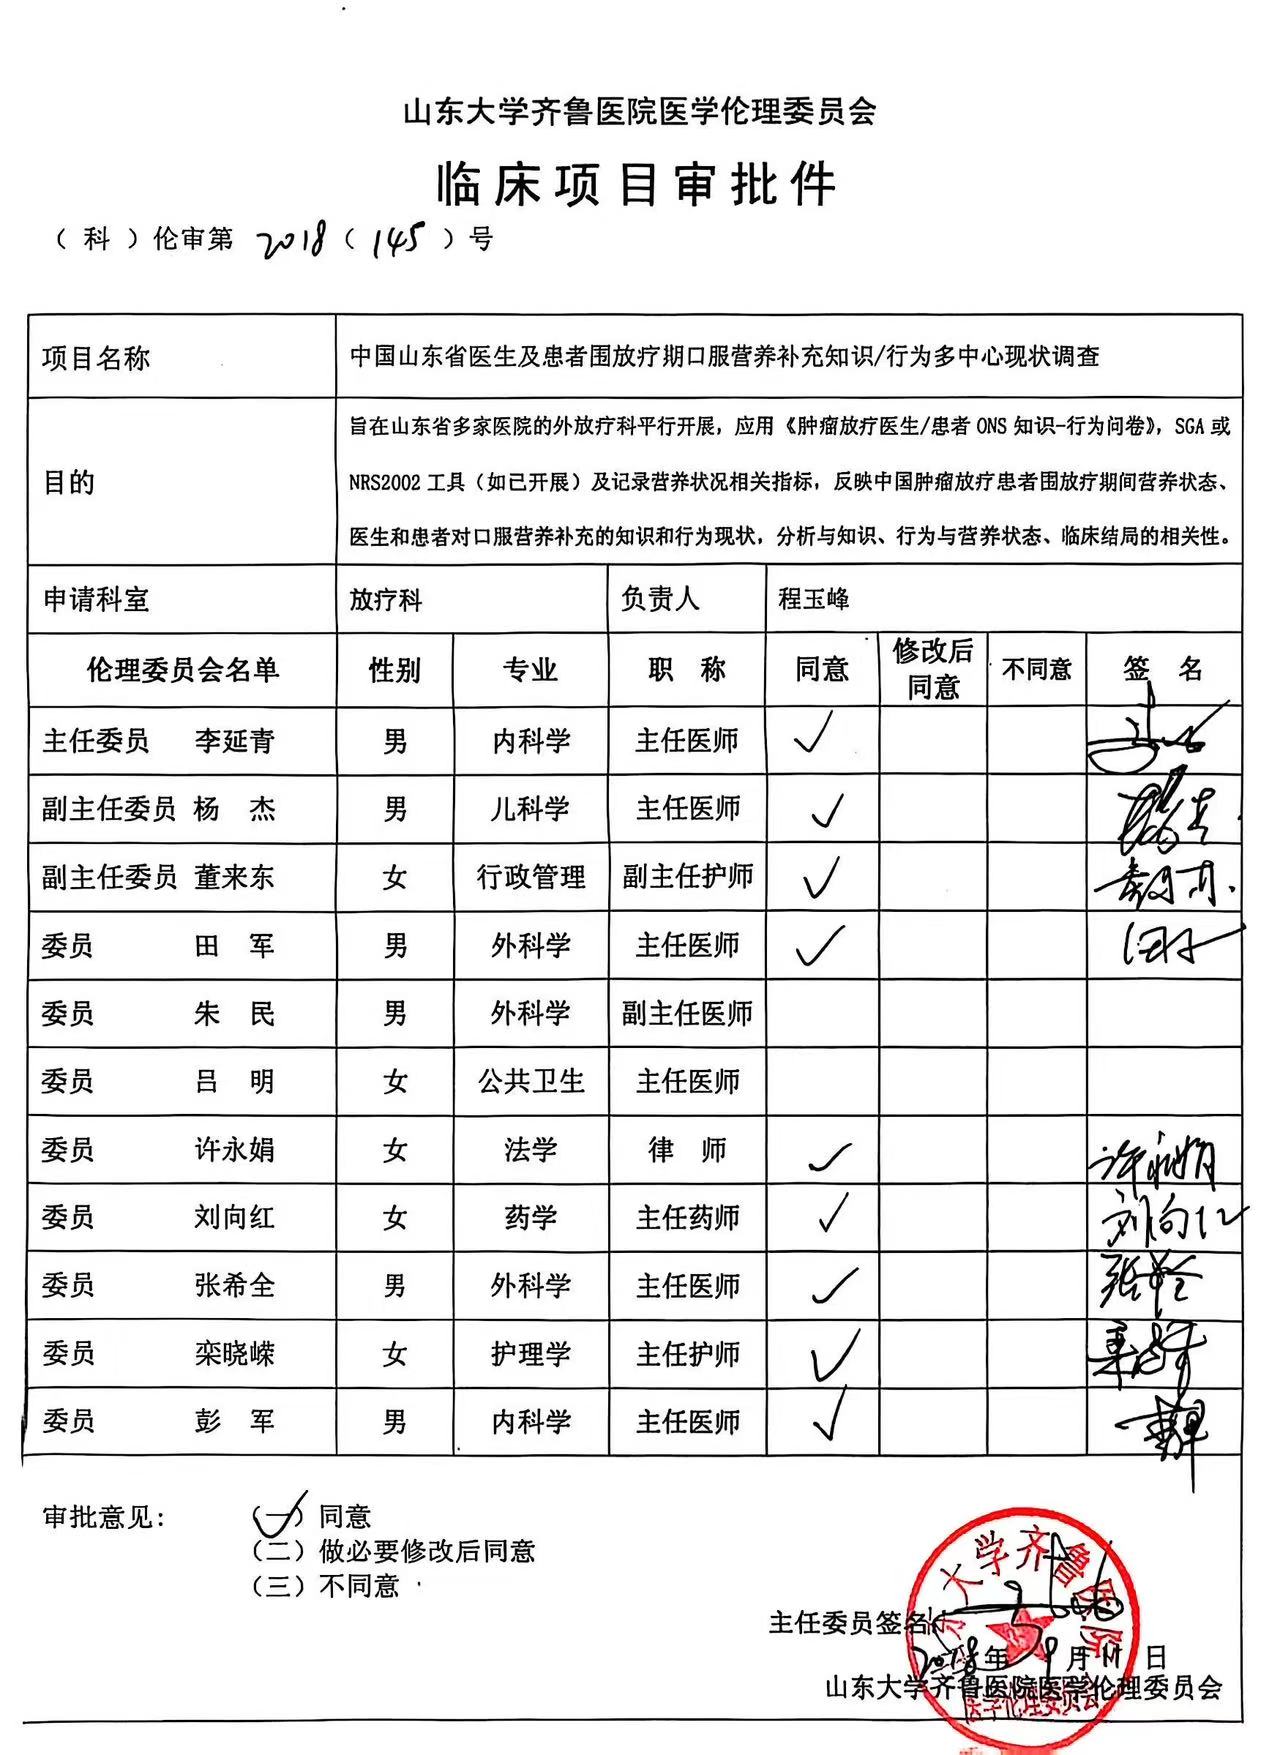 山东大学齐鲁医院医学伦理委员会
临床项目审批件
（ 科 ）伦审第 2018（ 145 ）号
项目名称 中国山东省医生及患者围放疗期口服营养补充知识/行为多中心现状调查
目的 旨在山东省多家医院的外放疗科平行开展，应用《肿瘤放疗医生/患者 ONS 知识-行为问卷》，SGA 或
NRS2002 工具（如已开展）及记录营养状况相关指标，反映中国肿瘤放疗患者围放疗期间营养状态、
医生和患者对口服营养补充的知识和行为现状，分析与知识、行为与营养状态、临床结局的相关性。
申请科室 放疗科 负责人 程玉峰
伦理委员会名单 性别 专业 职 称 同意 修改后同意 不同意 签 名
主任委员 李延青 男 内科学 主任医师 ✓
副主任委员 杨 杰 男 儿科学 主任医师 ✓
副主任委员 董来东 女 行政管理 副主任护师 ✓
委员 田 军 男 外科学 主任医师 ✓
委员 朱 民 男 外科学 副主任医师
委员 吕 明 女 公共卫生 主任医师
委员 许永娟 女 法学 律 师 ✓ 许永娟
委员 刘向红 女 药学 主任药师 ✓ 刘向红
委员 张希全 男 外科学 主任医师 ✓
委员 栾晓嵘 女 护理学 主任护师 ✓
委员 彭 军 男 内科学 主任医师 ✓
审批意见： （一）同意
（二）做必要修改后同意
（三）不同意
主任委员签名：
2018 年 9 月 11 日
山东大学齐鲁医院医学伦理委员会